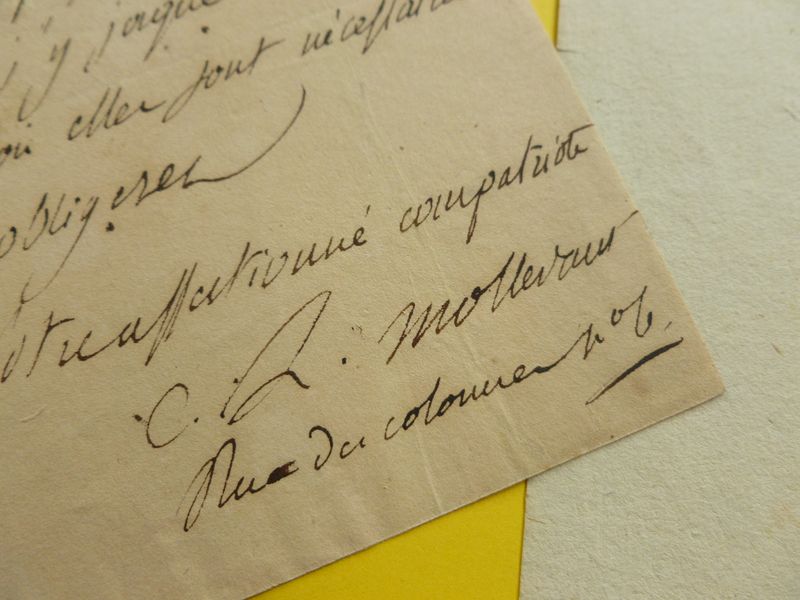 j'y joigne
elles sont nécessaire
obligerez
votre affectionné compatriote
C. L. Mollevaut
Rue des colonnes n° 6.